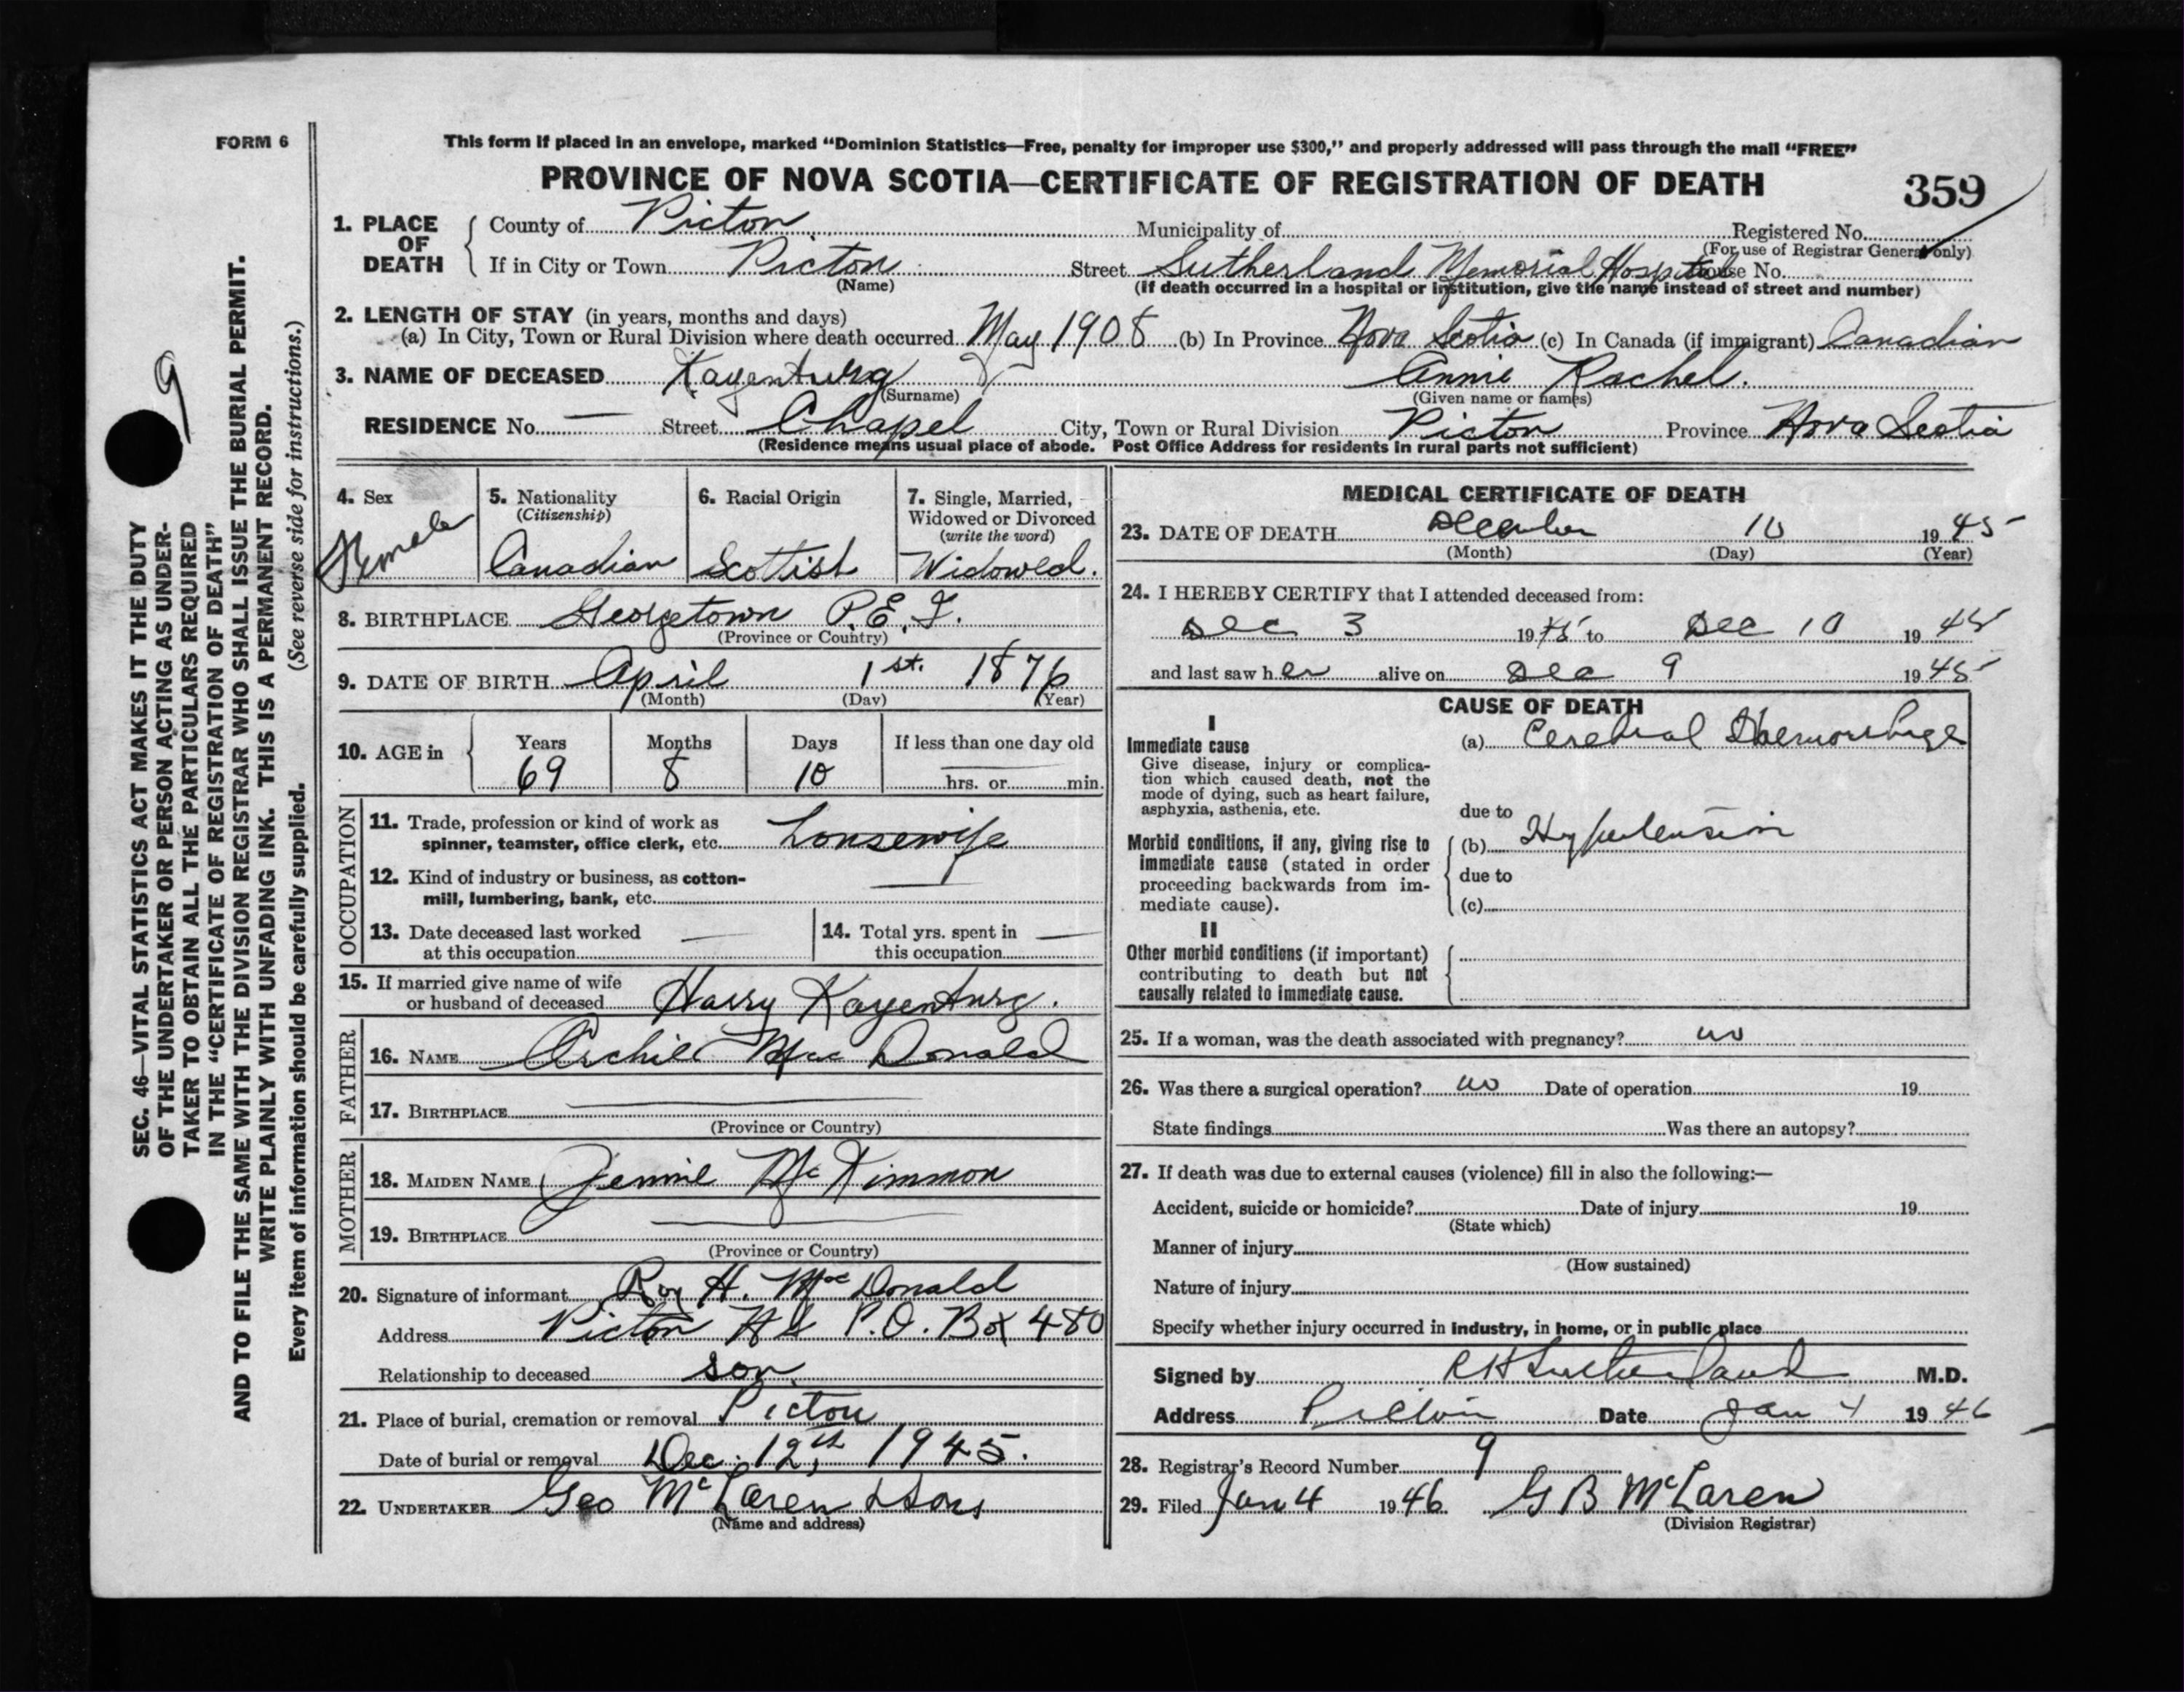 FORM 6
This form if placed in an envelope, marked "Dominion Statistics—Free, penalty for improper use $300," and properly addressed will pass through the mail "FREE"
PROVINCE OF NOVA SCOTIA—CERTIFICATE OF REGISTRATION OF DEATH 359
1. PLACE OF DEATH County of Pictou Municipality of Registered No.
(For use of Registrar General only)
If in City or Town Pictou Street Sutherland Memorial Hospital House No.
(Name) (If death occurred in a hospital or institution, give the name instead of street and number)
2. LENGTH OF STAY (in years, months and days)
(a) In City, Town or Rural Division where death occurred May 1908 (b) In Province Nova Scotia (c) In Canada (if immigrant) Canadian
3. NAME OF DECEASED Annie Rachel.
(Surname) (Given name or names)
RESIDENCE No. — Street Chapel City, Town or Rural Division Pictou Province Nova Scotia
(Residence means usual place of abode. Post Office Address for residents in rural parts not sufficient)
4. Sex
Female
5. Nationality
(Citizenship)
Canadian
6. Racial Origin
Scottish
7. Single, Married,
Widowed or Divorced
(write the word)
Widowed.
8. BIRTHPLACE Georgetown P.E.I.
(Province or Country)
9. DATE OF BIRTH April 1st. 1876
(Month) (Day) (Year)
10. AGE in Years Months Days If less than one day old
69 8 10 hrs. or min.
OCCUPATION
11. Trade, profession or kind of work as
spinner, teamster, office clerk, etc. housewife
12. Kind of industry or business, as cotton-
mill, lumbering, bank, etc. —
13. Date deceased last worked
at this occupation —
14. Total yrs. spent in
this occupation —
15. If married give name of wife
or husband of deceased Harry
FATHER
16. NAME Archie MacDonald
17. BIRTHPLACE —
(Province or Country)
MOTHER
18. MAIDEN NAME Jennie McKimmon
19. BIRTHPLACE —
(Province or Country)
20. Signature of informant Roy H. MacDonald
Address Pictou NS P.O. Box 480
Relationship to deceased son
21. Place of burial, cremation or removal Pictou
Date of burial or removal Dec. 12th, 1945.
22. UNDERTAKER Geo McLaren & Sons
(Name and address)
MEDICAL CERTIFICATE OF DEATH
23. DATE OF DEATH December 10 1945
(Month) (Day) (Year)
24. I HEREBY CERTIFY that I attended deceased from:
Dec 3 1945 to Dec 10 1945
and last saw her alive on Dec 9 1945
CAUSE OF DEATH
I
Immediate cause (a) Cerebral Haemorrhage
Give disease, injury or complica-
tion which caused death, not the
mode of dying, such as heart failure,
asphyxia, asthenia, etc.
due to
Morbid conditions, if any, giving rise to (b) Hypertension
immediate cause (stated in order
proceeding backwards from im-
mediate cause).
due to
(c)
II
Other morbid conditions (if important)
contributing to death but not
causally related to immediate cause.
25. If a woman, was the death associated with pregnancy? no
26. Was there a surgical operation? no Date of operation 19
State findings Was there an autopsy?
27. If death was due to external causes (violence) fill in also the following:—
Accident, suicide or homicide? Date of injury 19
(State which)
Manner of injury
(How sustained)
Nature of injury
Specify whether injury occurred in industry, in home, or in public place
Signed by RH Sutherland M.D.
Address Pictou Date Jan 4 1946
28. Registrar's Record Number 9
29. Filed Jan 4 1946 G B McLaren
(Division Registrar)
9
SEC. 46—VITAL STATISTICS ACT MAKES IT THE DUTY
OF THE UNDERTAKER OR PERSON ACTING AS UNDER-
TAKER TO OBTAIN ALL THE PARTICULARS REQUIRED
IN THE "CERTIFICATE OF REGISTRATION OF DEATH"
AND TO FILE THE SAME WITH THE DIVISION REGISTRAR WHO SHALL ISSUE THE BURIAL PERMIT.
WRITE PLAINLY WITH UNFADING INK. THIS IS A PERMANENT RECORD.
Every item of information should be carefully supplied. (See reverse side for instructions.)